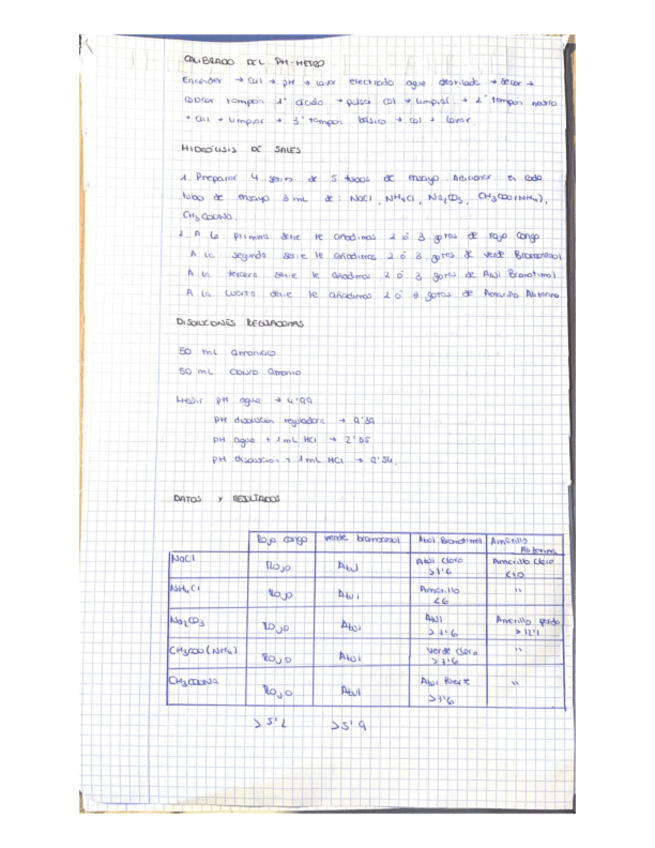 CALIBRADO DEL PH-METRO
Encender → cal → pH → lavar electrodo agua destilada → secar →
colocar tampon 1° ácido → pulsar cal → limpiar → 2° tampon neutro
→ cal → limpiar → 3° tampon básico → cal → lavar
HIDRÓLISIS DE SALES
1. Preparar 4 series de 5 tubos de ensayo. Adicionar en cada
tubo de ensayo 3 mL de: NaCl, NH4Cl, Na2CO3, CH3COO(NH4),
CH3COONa.
2. A la primera serie le añadimos 2 ó 3 gotas de rojo congo
A la segunda serie le añadimos 2 ó 3 gotas de verde Bromocresol
A la tercera serie le añadimos 2 ó 3 gotas de Azul Bromotimol
A la cuarta serie le añadimos 2 ó 3 gotas de Amarillo Alizarina
DISOLUCIONES REGULADORAS
50 mL amoniaco
50 mL cloruro amonio
Medir pH agua → 4'99
pH disolución reguladora →
pH agua + 1 mL HCl →
pH disolución + 1 mL HCl →
DATOS Y RESULTADOS
Rojo congo verde bromocresol Azul Bromotimol Amarillo Alizarina
NaCl Rojo Azul Azul claro >7'6 Amarillo claro <10
NH4Cl Rojo Azul Amarillo <6 "
Na2CO3 Rojo Azul Azul >7'6 Amarillo pardo >12'1
CH3COO(NH4) Rojo Azul verde claro >7'6 "
CH3COONa Rojo Azul Azul fuerte >7'6 "
>5'2 >5'9